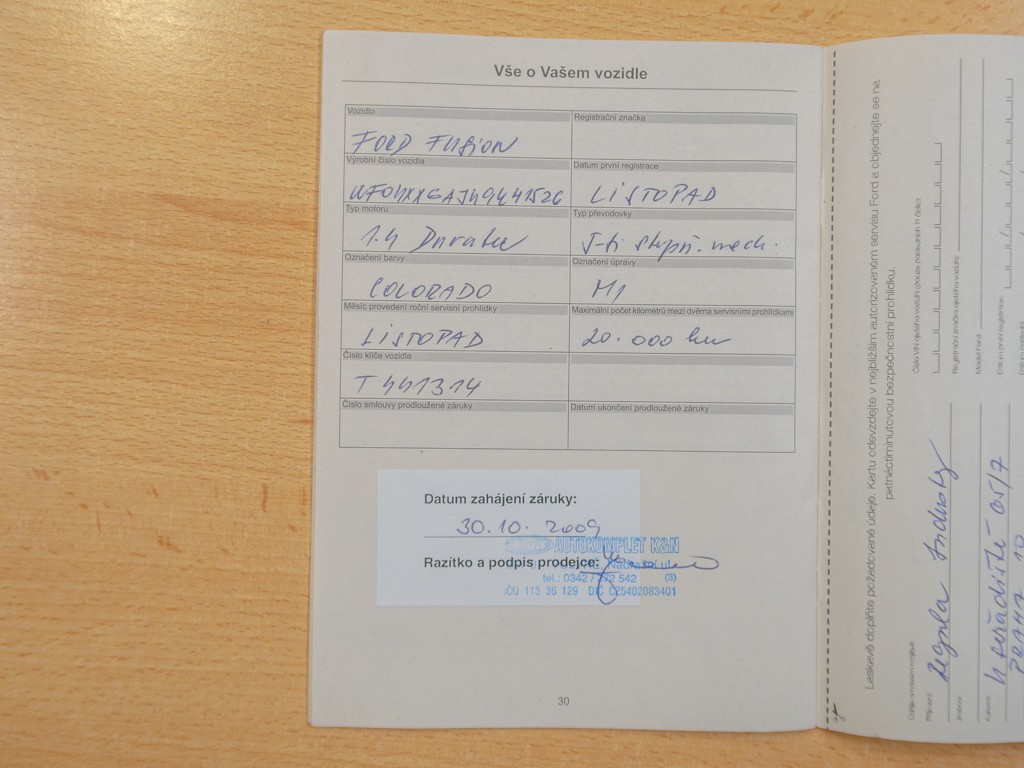 Vše o Vašem vozidle
Vozidlo
Registrační značka
FORD FUSION
Výrobní číslo vozidla
Datum první registrace
WF0UXXGAJU9U41526
LISTOPAD
Typ motoru
Typ převodovky
1.4 Duratec
5-ti stupň. mech.
Označení barvy
Označení úpravy
COLORADO
M1
Měsíc provedení roční servisní prohlídky
Maximální počet kilometrů mezi dvěma servisními prohlídkami
LISTOPAD
20.000 km
Číslo klíče vozidla
T441314
Číslo smlouvy prodloužené záruky
Datum ukončení prodloužené záruky
Datum zahájení záruky:
30.10. 2009
AUTOKOMPLET K&N
Razítko a podpis prodejce:
Nádražní ul.
tel.: 0342 / 572 542 (3)
IČO 113 36 129 DIČ CZ5402083401
30
Laskavě doplňte požadované údaje. Kartu odevzdejte v nejbližším autorizovaném servisu Ford a objednejte se na
patnáctiminutovou bezpečnostní prohlídku.
Příjmení:
Jméno:
Adresa:
05/7
Číslo VIN ojetého vozidla (pouze posledních 11 čísel):
Registrační značka ojetého vozidla:
Model Ford:
Datum první registrace: